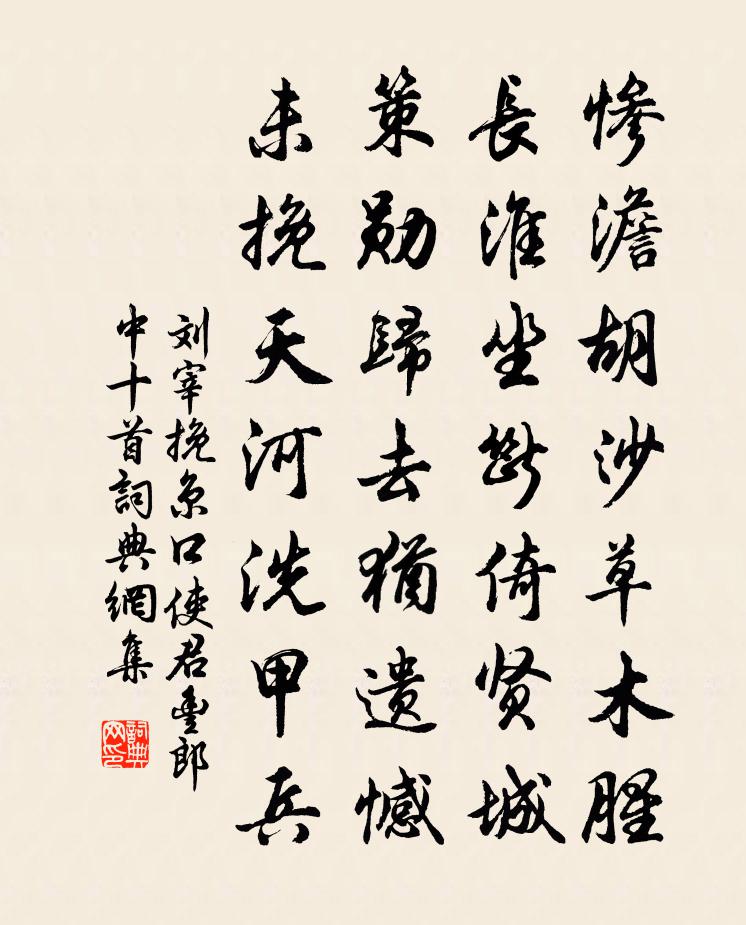 惨澹胡沙草木腥
長淮坐斷倚贤城
策勋歸去猶遗憾
未挽天河洗甲兵
刘宰挽京口使君豐郎
中十首詞典網集
詞典网印